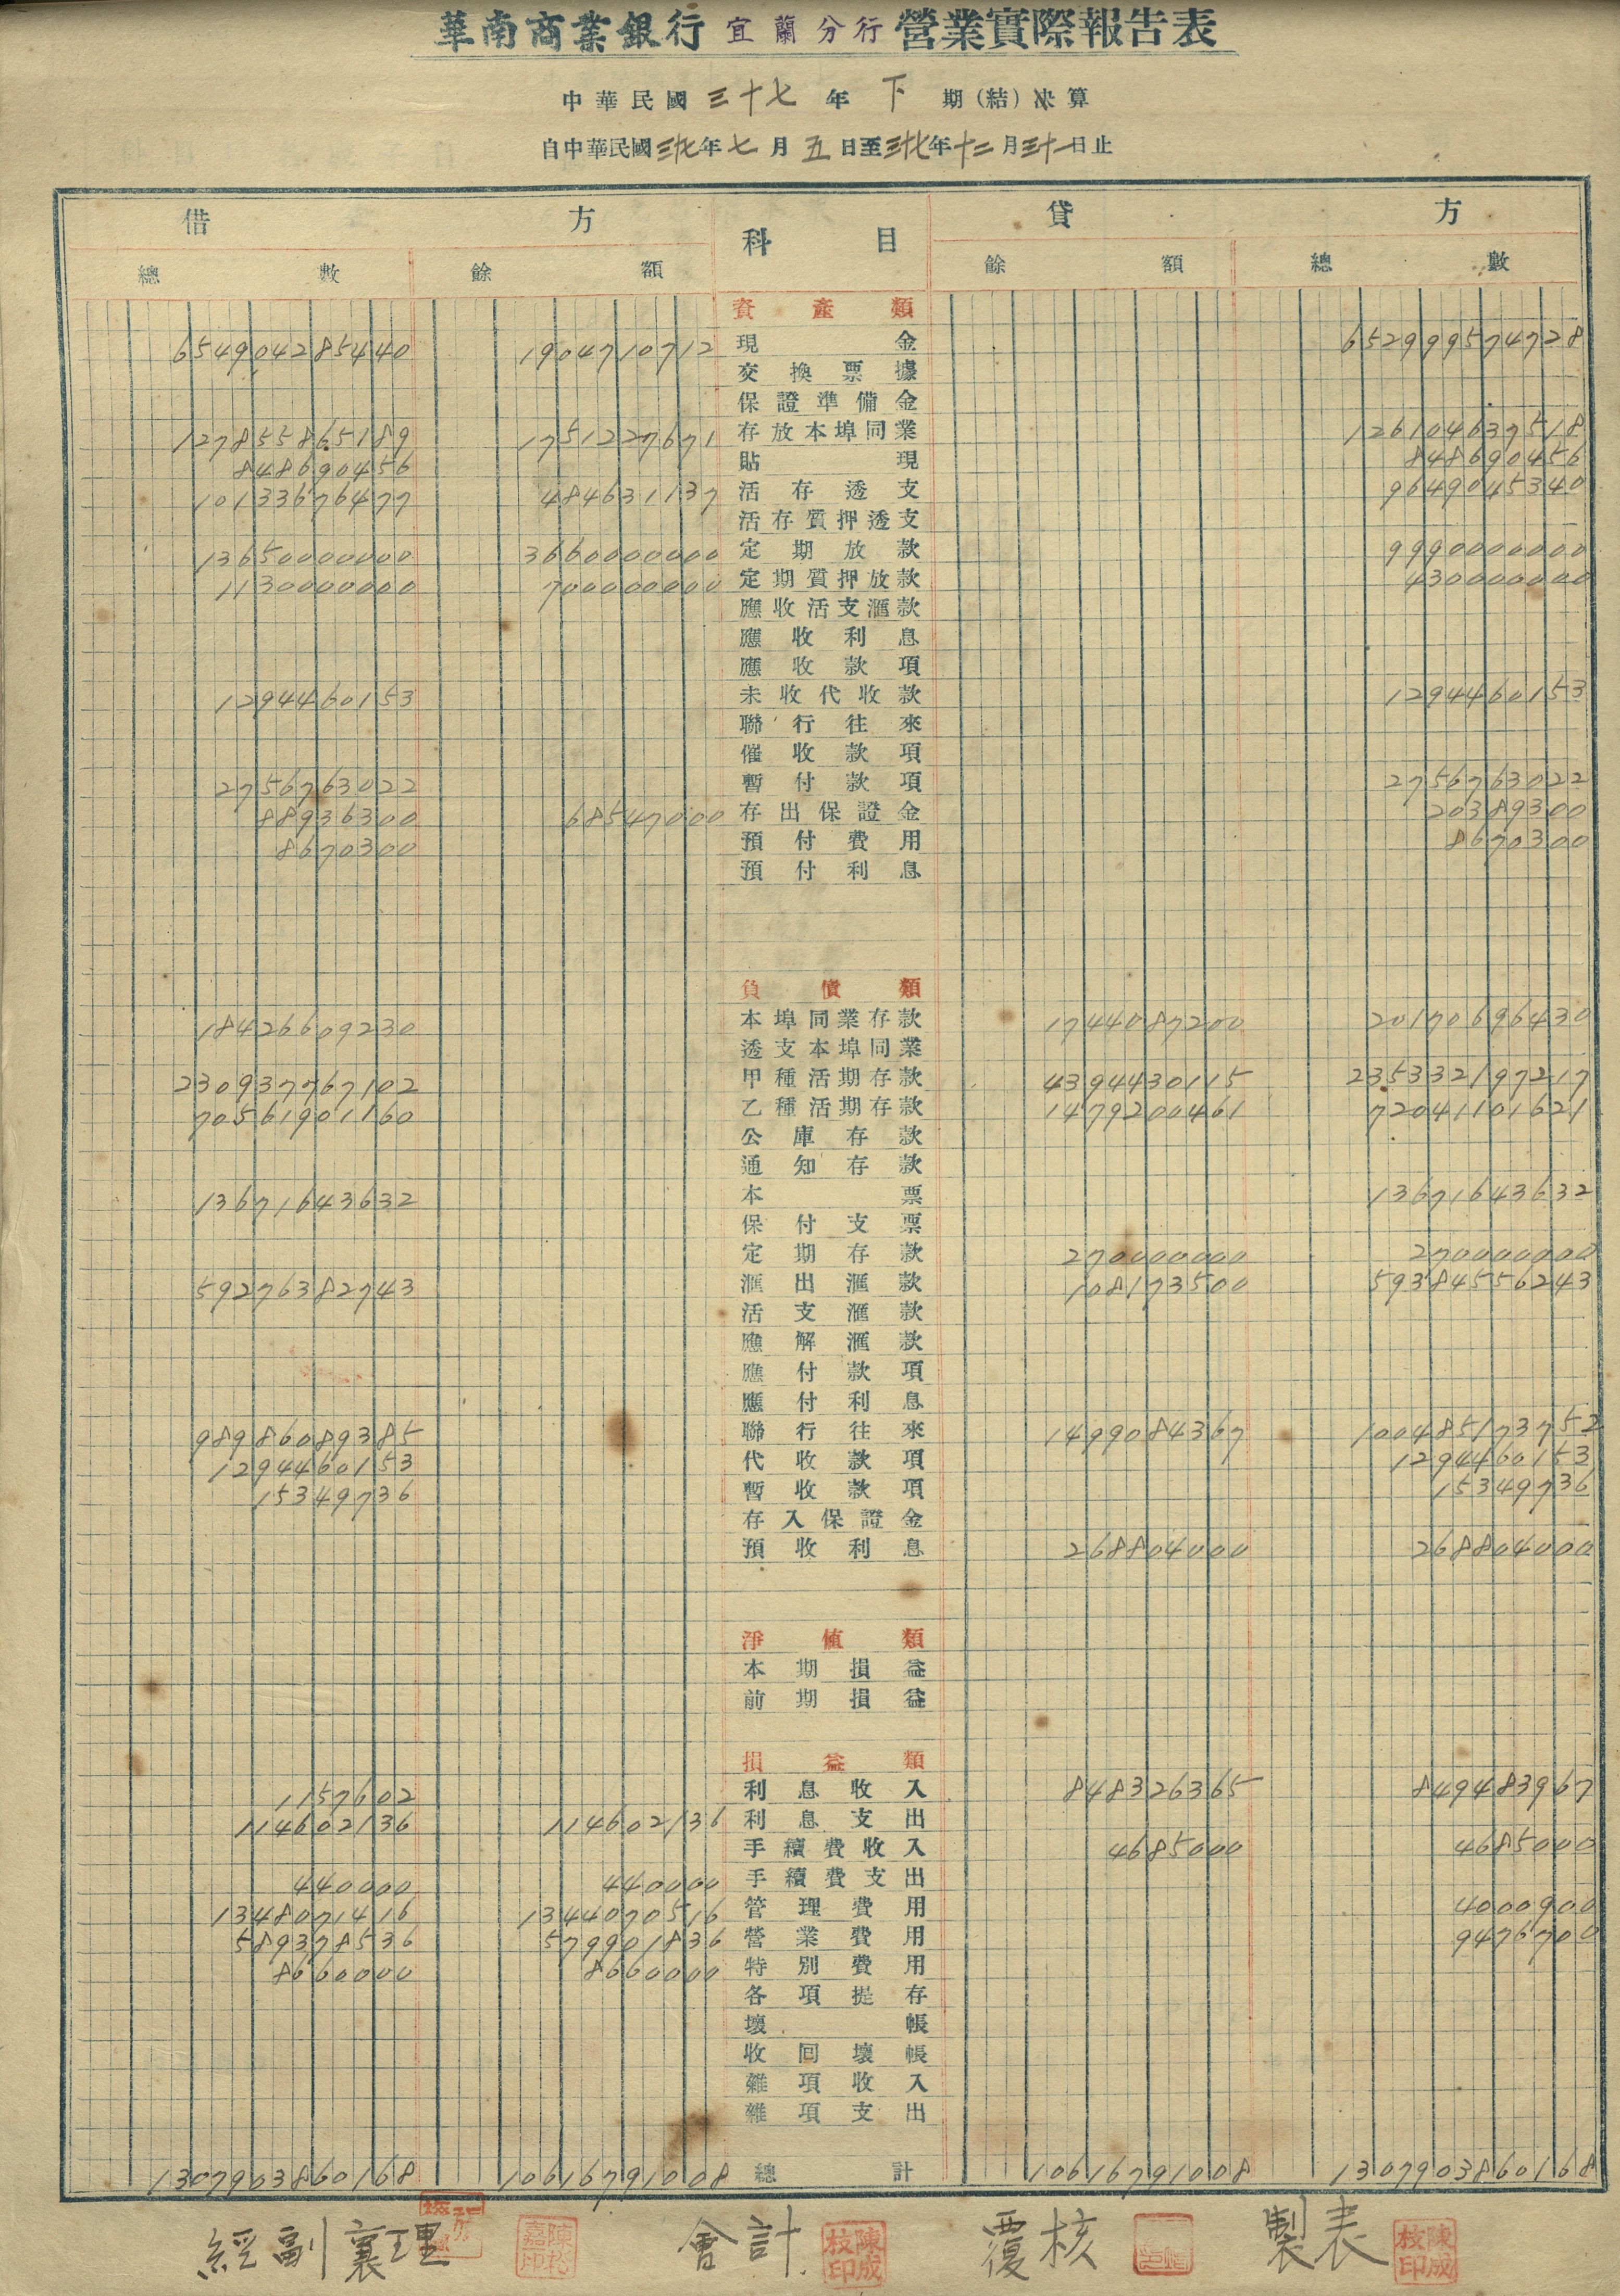 華南商業銀行 宜蘭分行 營業實際報告表
中華民國三十七年下期(結)決算
自中華民國三十七年七月五日至三十七年十二月三十一日止
借方 科目 貸方
總數 餘額 餘額 總數
資產類
654904285440 1904710712 現金 652999574728
交換票據
保證準備金
127855865189 1751227671 存放本埠同業 126104637518
848690456 貼現 848690456
10133676477 484631137 活存透支 9649045340
活存質押透支
13650000000 3660000000 定期放款 9990000000
1130000000 700000000 定期質押放款 430000000
應收活支滙款
應收利息
應收款項
1294460153 未收代收款 1294460153
聯行往來
催收款項
2756763022 暫付款項 2756763022
88936300 68547000 存出保證金 20389300
8670300 預付費用 8670300
預付利息
負債類
18426609230 本埠同業存款 1744087200 20170696430
透支本埠同業
230937767102 甲種活期存款 4394430115 235332197217
70561901160 乙種活期存款 1479200461 72041101621
公庫存款
通知存款
13671643632 本票 13671643632
保付支票
定期存款 270000000 270000000
59276382743 滙出滙款 108173500 59384556243
活支滙款
應解滙款
應付款項
應付利息
98986089385 聯行往來 1499084367 100485173752
1294460153 代收款項 1294460153
15349736 暫收款項 15349736
存入保證金
預收利息 268804000 268804000
淨值類
本期損益
前期損益
損益類
1157602 利息收入 848326365 849483967
114602136 114602136 利息支出
手續費收入 4685000 4685000
440000 440000 手續費支出
1348071416 1344070516 管理費用 4000900
589378536 579901836 營業費用 9476700
8660000 8660000 特別費用
各項提存
壞帳
收回壞帳
雜項收入
雜項支出
1307903860168 10616791008 總計 10616791008 1307903860168
經副襄理 會計 陳成枝印 覆核 製表 陳成枝印